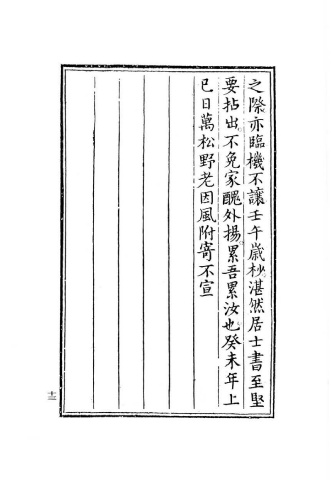 之際亦臨機不讓壬午歲杪湛然居士書至堅
要拈出不免家醜外揚累吾累汝也癸未年上
巳日萬松野老因風附寄不宣
十三